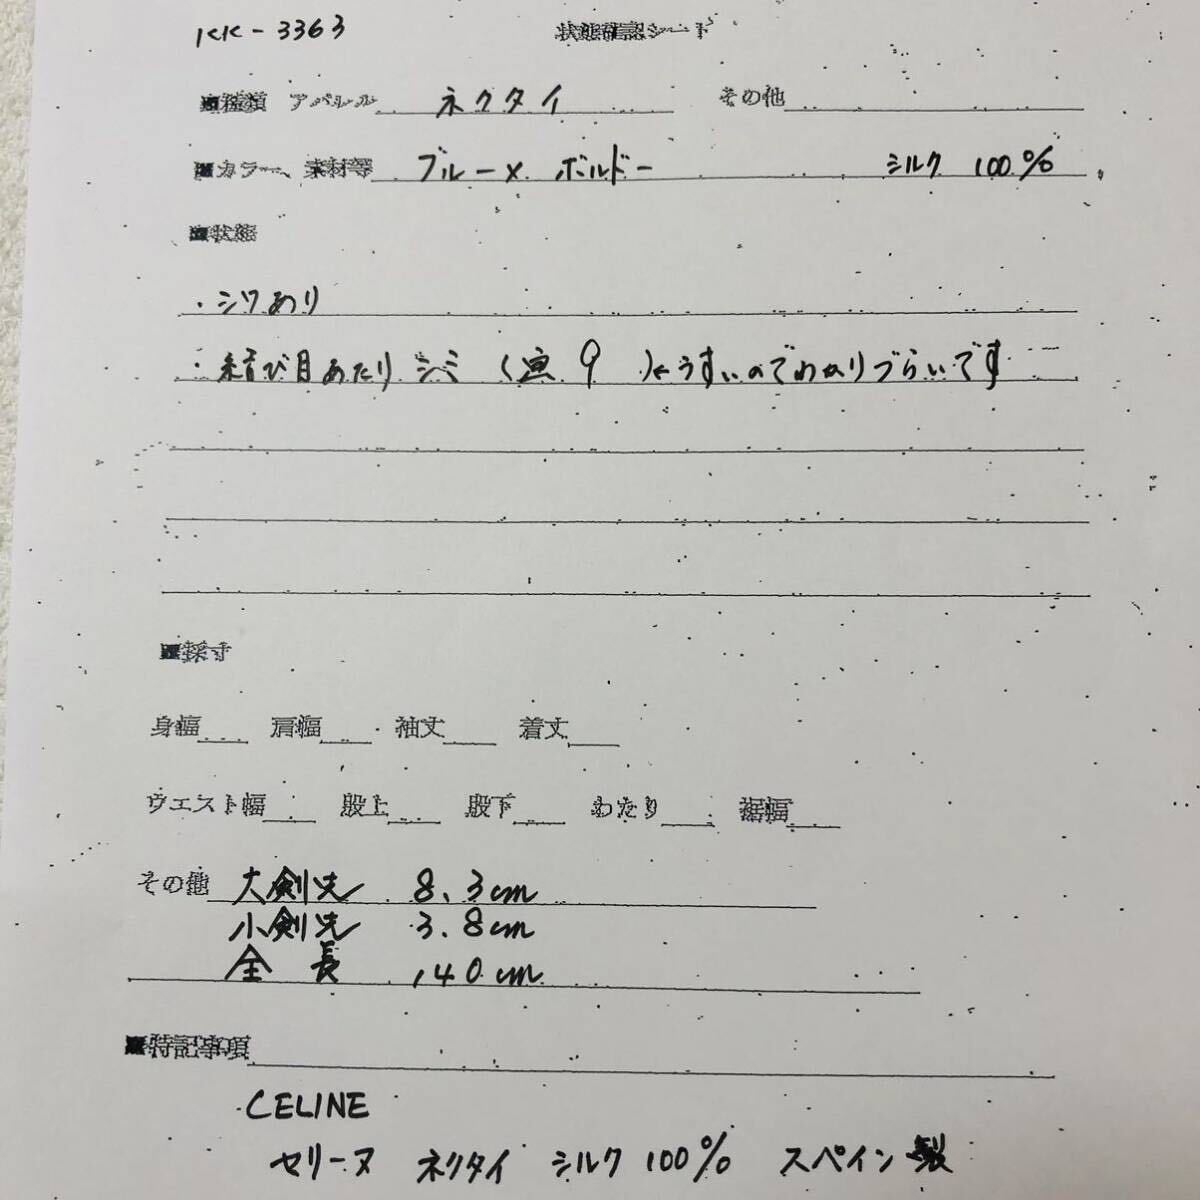 KK-3363 状態確認シート
■種類 アパレル ネクタイ その他
■カラー、素材等 ブルー× ボルドー シルク 100%
■状態
・シワあり
・結び目あたり シミ (画 9 )←うすいのでわかりづらいです
■採寸
身幅 肩幅 袖丈 着丈
ウエスト幅 股上 股下 わたり 裾幅
その他 大剣先 8.3cm
小剣先 3.8cm
全 長 140cm
■特記事項
CELINE
セリーヌ ネクタイ シルク 100% スペイン製